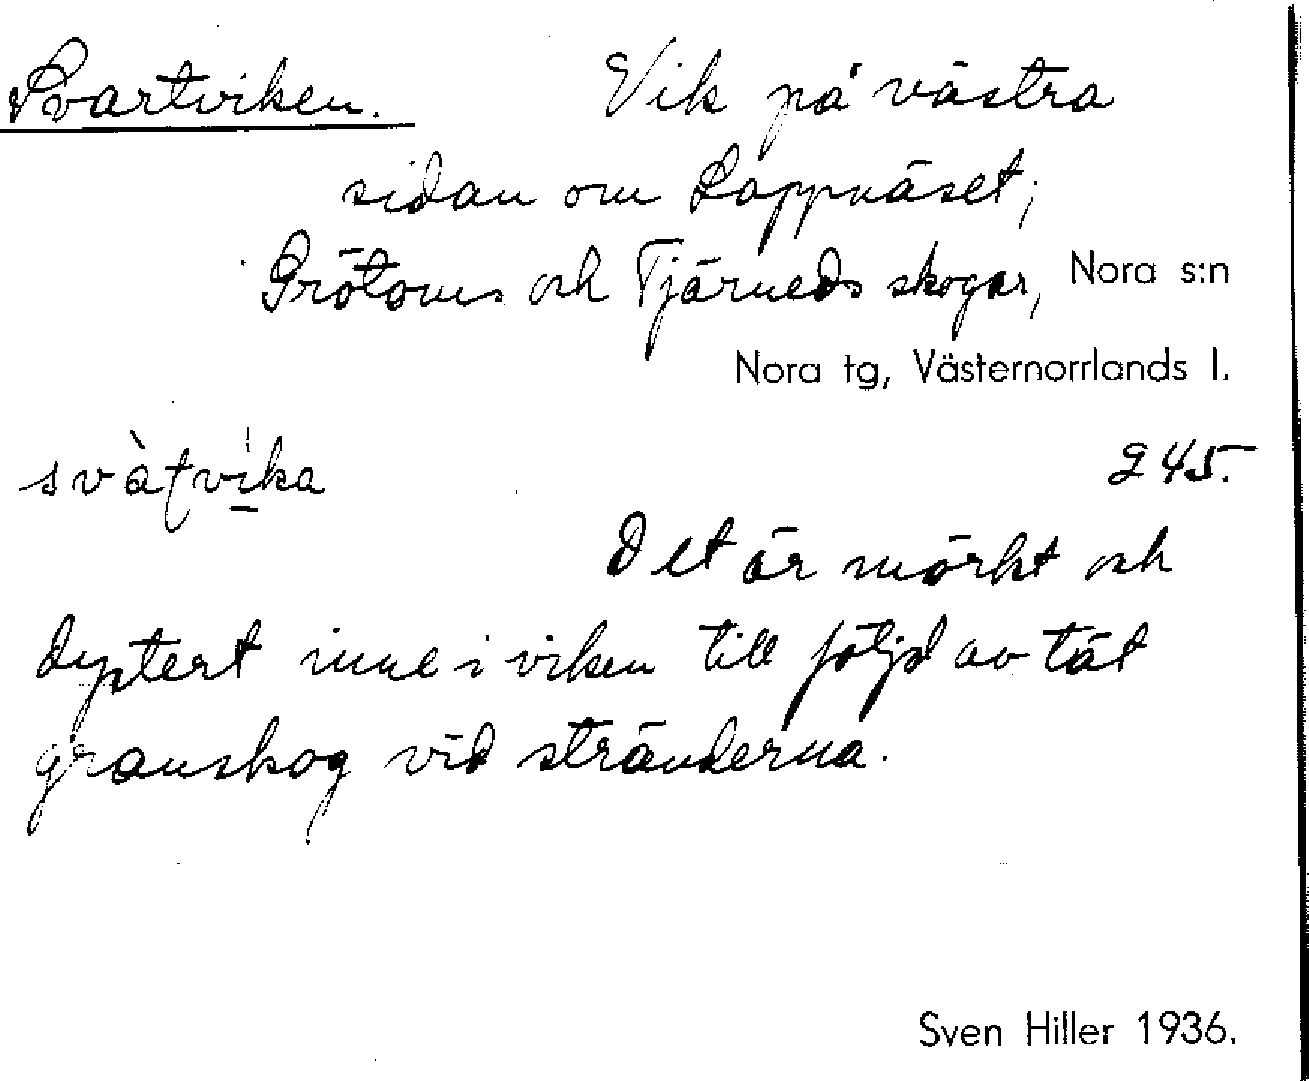 Svartviken. Vik på västra
sidan om Lappnäset;
Grötoms och Tjärneds skogar, Nora s:n
Nora tg, Västernorrlands l.
svàtvíka 245.
Det är mörkt och
dystert inne i viken till följd av tät
granskog vid stränderna.
Sven Hiller 1936.